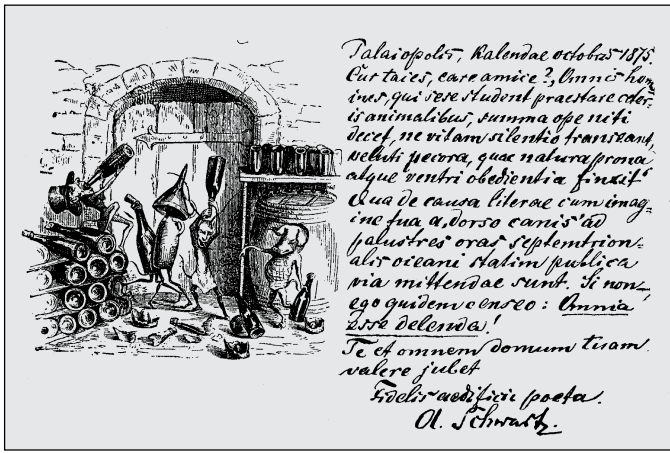 Palaiopolis, Kalendae octobras 1875.
Cur taces, care amice? „Omnis hom-
ines, qui sese student praestare ceter-
is animalibus, summa ope niti
decet, ne vitam silentio transeant,
veluti pecora, quae natura prona
atque ventri obedientia finxit“
Qua de causa literae cum imag-
ine tua a „dorso canis“ ad
palustres oras septemtrion-
alis oceani statim publica
via mittendae sunt. Si non–
ego quidem censeo: Omnia
esse delenda!
Te et omnem domum tuam
valere jubet
Fidelis aedificii poeta.
A. Schwartz.